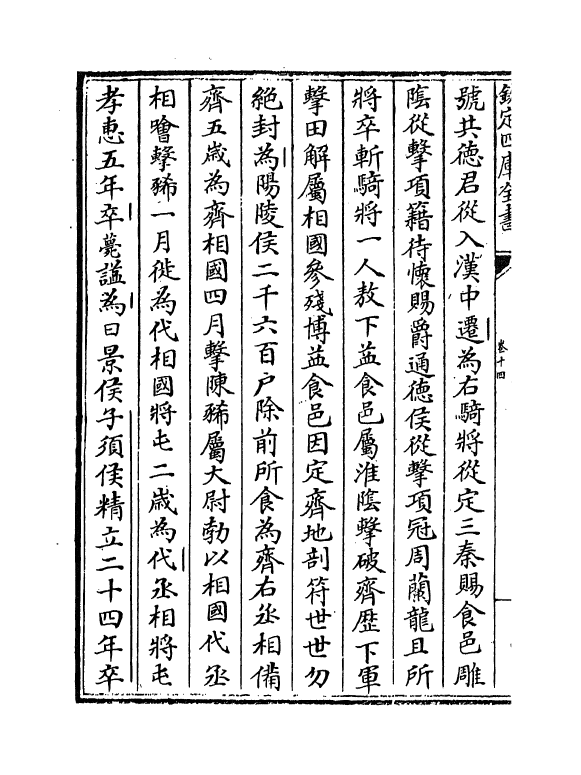 欽定四庫全書
卷十四
號共德君從入漢中遷為右騎將從定三秦賜食邑雕
陰從擊項籍待懷賜爵通德侯從擊項冠周蘭龍且所
將卒斬騎將一人敖下益食邑屬淮陰擊破齊歴下軍
擊田解屬相國參殘博益食邑因定齊地剖符世世勿
絶封為陽陵侯二千六百户除前所食為齊右丞相備
齊五歲為齊相國四月擊陳豨屬大尉勃以相國代丞
相噲擊豨一月徙為代相國將屯二歲為代丞相將屯
孝惠五年卒薨諡為曰景侯子須侯精立二十四年卒